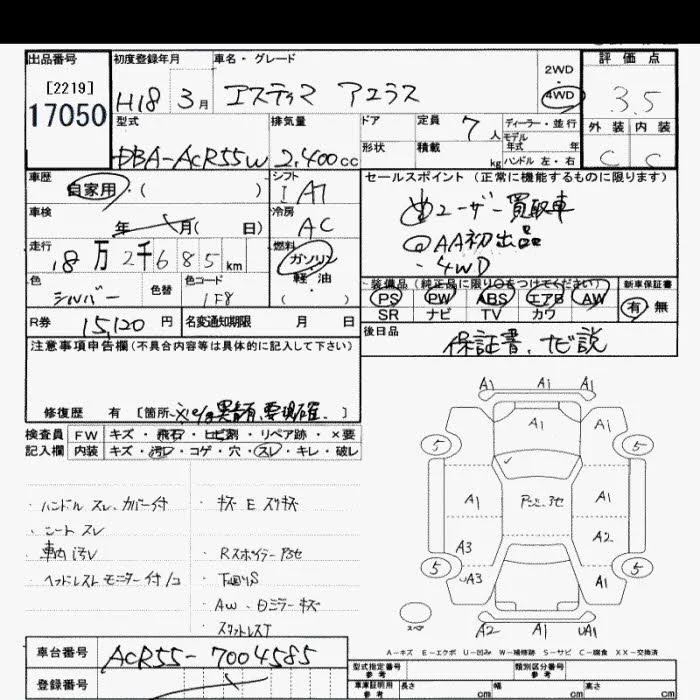 出品番号 初度登録年月 車名・グレード 2WD 評価点
[2219] H18 3月 エスティマ アエラス 4WD 3.5
17050 型式 排気量 ドア 定員 7人 ディーラー・並行 外装 内装
モデル年式 年
DBA-ACR55W 2,400cc 形状 積載 kg ハンドル 左・右 C C
車歴 シフト セールスポイント(正常に機能するものに限ります)
自家用・( ) IAT
ユーザー買取車
車検 冷房
年 月( 日) AC
AA初出品
走行 燃料
18万2千685km ガソリン
・4WD
色 色替 色コード 軽油
シルバー 1F8 ( )
装備品(純正品に限り○をつけてください) 新車保証書
PS PW ABS エアB AW 有 無
SR ナビ TV カワ
R券 15,120円 名変通知期限 月 日
後日品
保証書、ナビ説
注意事項申告欄(不具合内容等は具体的に記入して下さい)
修復歴 有 [箇所 要確認 ]
検査員 FW キズ・飛石・ヒビ割・リペア跡・×要
記入欄 内装 キズ・汚レ・コゲ・穴・スレ・キレ・破レ
・ハンドル スレ、カバー付
・シート スレ
・車内汚レ
・ヘッドレストモニター付
・キズ E スリキズ
・Rスポイラー
・下廻りS
・AW、ミラーキズ
・スタットレスT
A1 A1 A1
A1
5 5
A1 A1
A3 A2
5 5
A3 A1
スペア
A2 A1 UA1
A-キズ E-エクボ U-凹み W-補修跡 S-サビ C-腐食 XX-交換済
車台番号 ACR55-7004585
登録番号
型式指定番号 参考 類別区分番号 参考
車庫証明用 参考 長さ cm 幅 cm 高さ cm